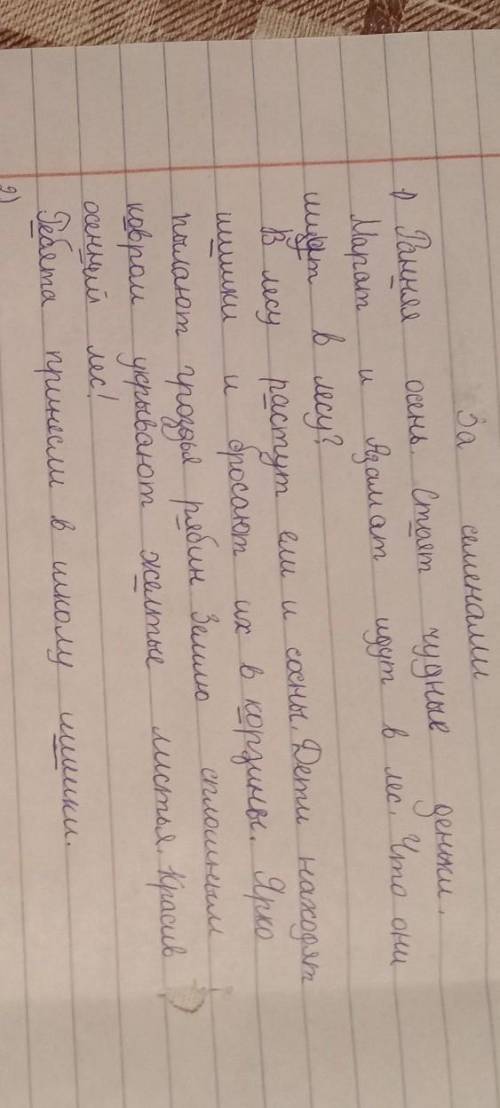 За семенами
1) Ранняя осень. Стоят чудные деньки.
Марат и Азамат идут в лес. Что они
ищут в лесу?
В лесу растут ели и сосны. Дети находят
шишки и бросают их в корзины. Ярко
пылают гроздья рябин. Землю сплошным
ковром укрывают желтые листья. Красив
осенний лес!
Ребята принесли в школу шишки.
2)